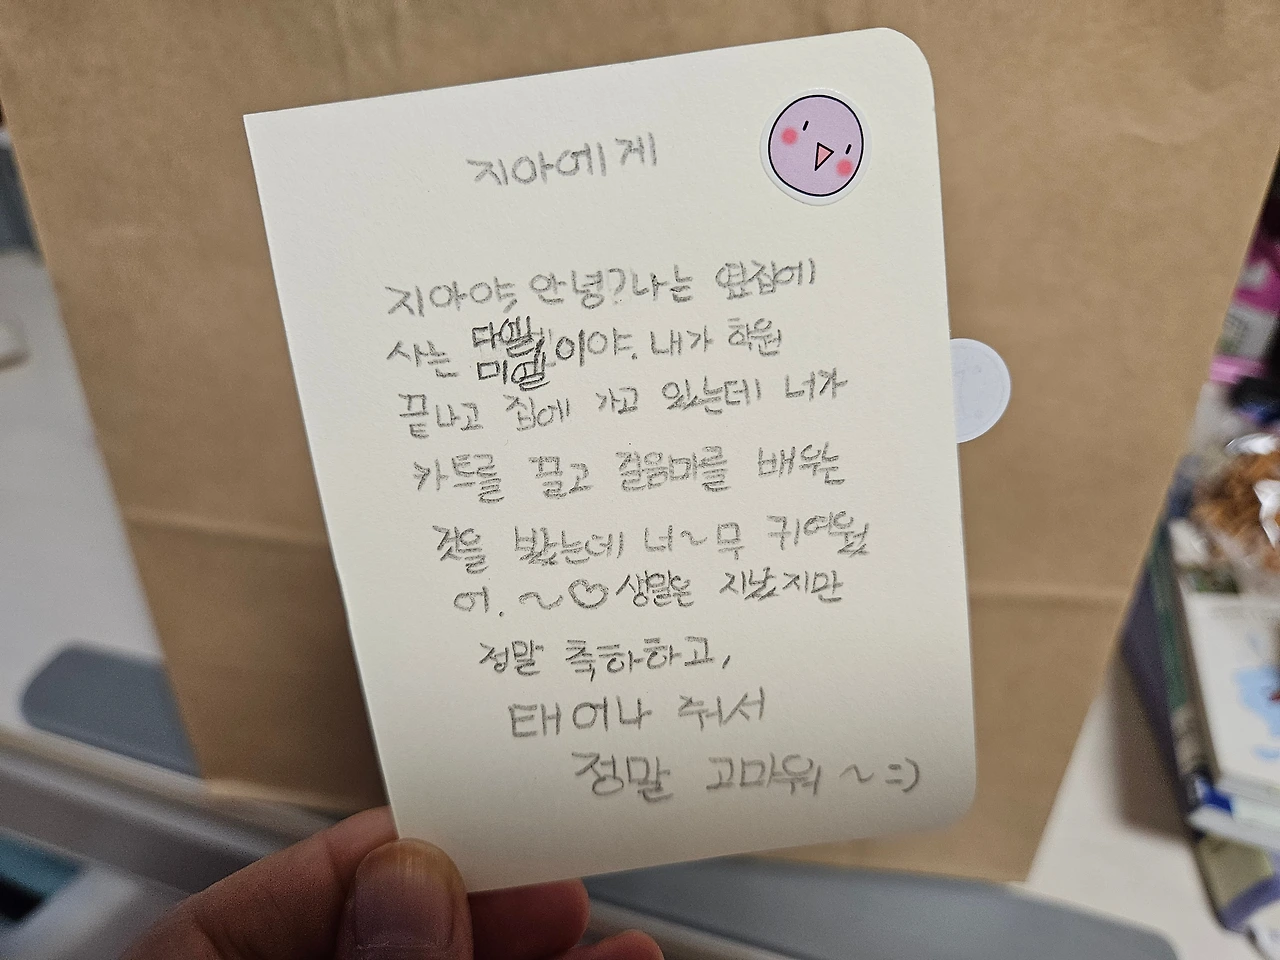 지아에게
지아야, 안녕? 나는 옆집에
사는 다엘, 미엘이야. 내가 학원
끝나고 집에 가고 있는데 너가
카트를 끌고 걸음마를 배우는
것을 봤는데 너~무 귀여웠
어.~♡ 생일은 지났지만
정말 축하하고,
태어나 줘서
정말 고마워 ~ =)